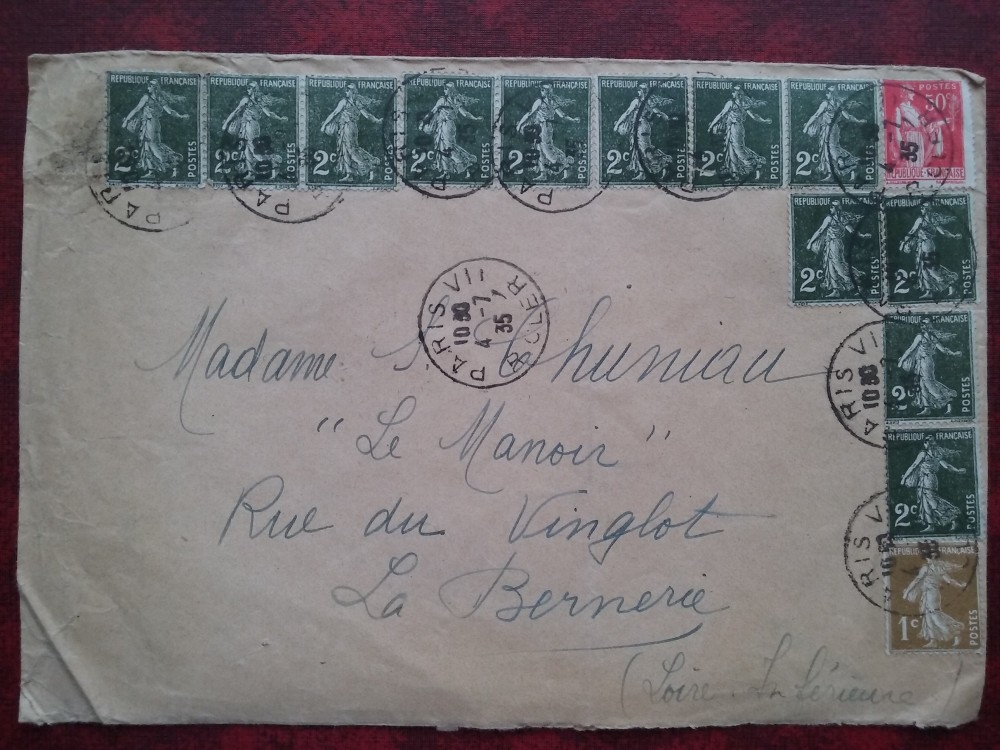 REPUBLIQUE FRANÇAISE REPUBLIQUE FRANÇAISE REPUBLIQUE FRANÇAISE REPUBLIQUE FRANÇAISE REPUBLIQUE FRANÇAISE REPUBLIQUE FRANÇAISE REPUBLIQUE FRANÇAISE REPUBLIQUE FRANÇAISE POSTES
50c
2c POSTES 2c POSTES 2c POSTES 2c POSTES 2c POSTES 2c POSTES 2c POSTES 2c POSTES REPUBLIQUE FRANÇAISE
REPUBLIQUE FRANÇAISE REPUBLIQUE FRANÇAISE
2c POSTES 2c POSTES
PARIS VII
10 30
4 -7
35
R. CLER
REPUBLIQUE FRANÇAISE
2c POSTES
PARIS VII
10 30
Madame
"Le Manoir"
REPUBLIQUE FRANÇAISE
2c POSTES
Rue du Vinglot
REPUBLIQUE FRANÇAISE
1c POSTES
La Bernerie
(Loire. Inférieure)